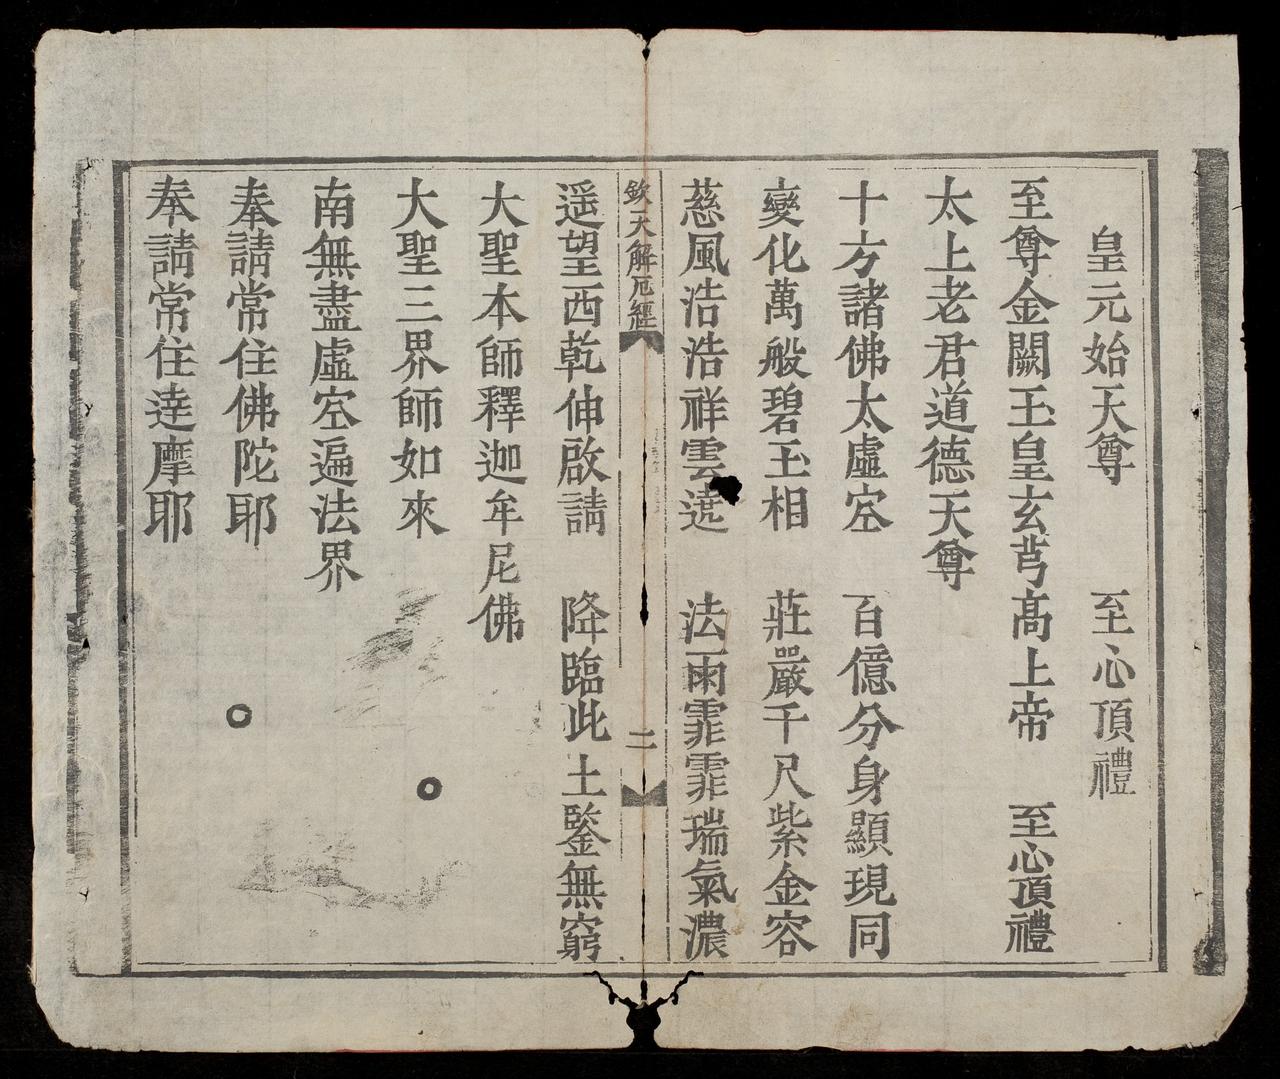 皇元始天尊　至心頂禮
至尊金闕玉皇玄芎髙上帝　至心頂禮
太上老君道德天尊
十方諸佛太虛空　百億分身顯現同
變化萬般碧玉相　莊嚴千尺紫金容
慈風浩浩祥雲遶　法雨霏霏瑞氣濃
欽天解厄經
二
遥望西乾伸啟請　降臨此土鍳無窮
大聖本師釋迦牟尼佛
大聖三界師如來
南無盡虛空遍法界
奉請常住佛陀耶
奉請常住達摩耶